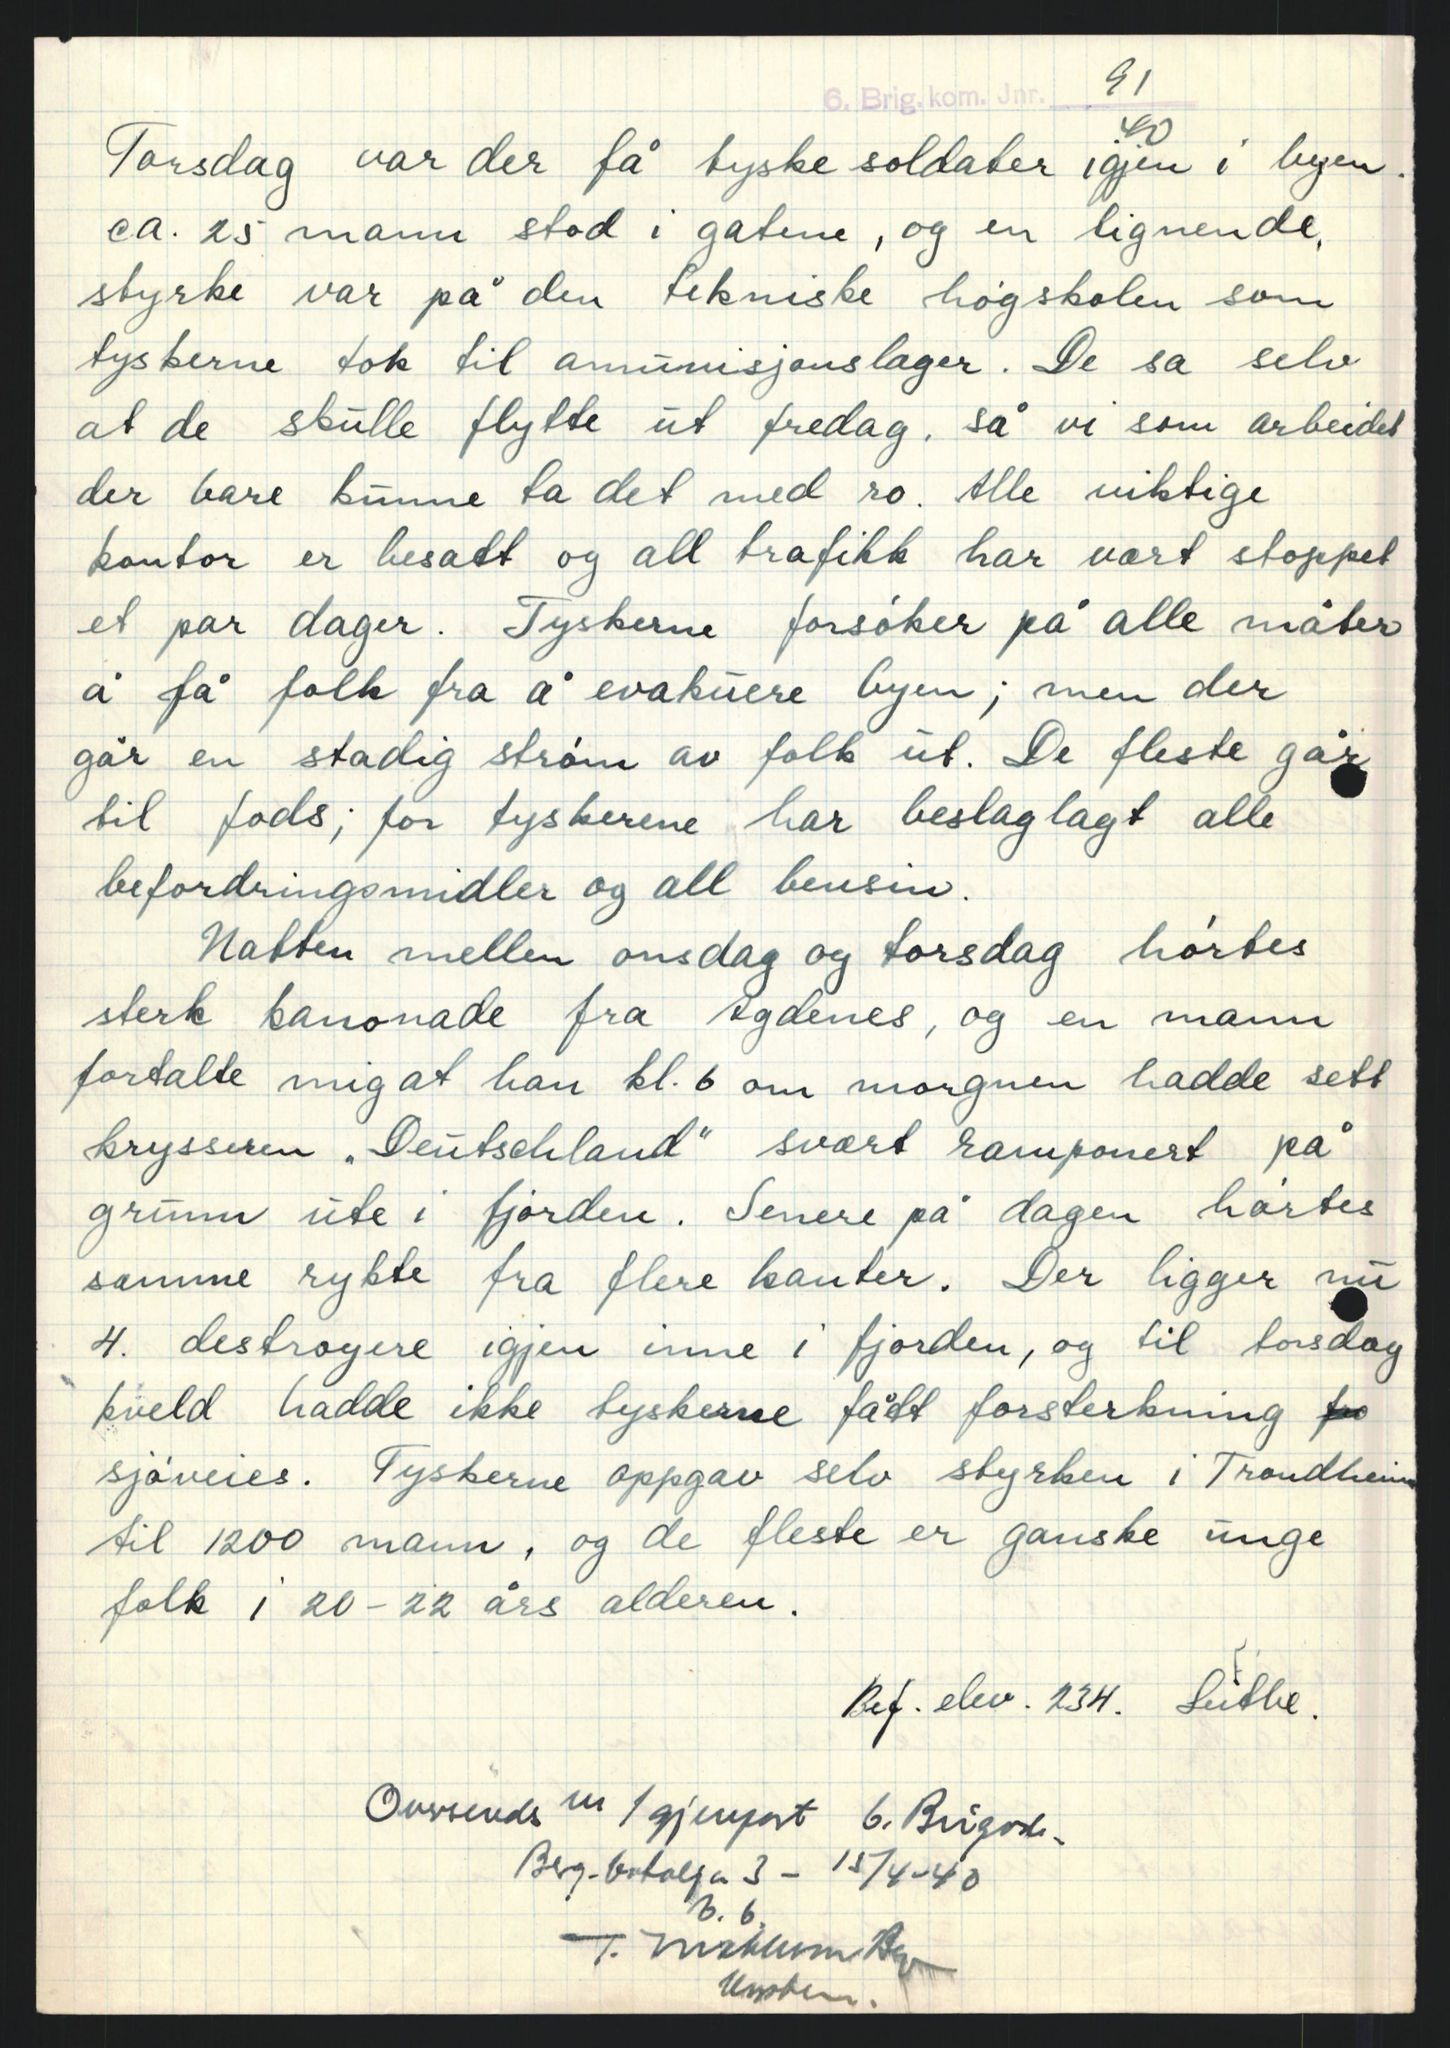 6. Brig.kom. Jnr. 91
40
Torsdag var der få tyske soldater igjen i byen.
ca. 25 mann stod i gatene, og en lignende,
styrke var på den tekniske högskolen som
tyskerne tok til amunisjonslager. De sa selv
at de skulle flytte ut fredag, så vi som arbeidet
der bare kunne ta det med ro. Alle viktige
kontor er besatt og all trafikk har vært stoppet
et par dager. Tyskerne forsöker på alle måter
å få folk fra å evakuere byen; men der
går en stadig ström av folk ut. De fleste går
til fods; for tyskerene har beslaglagt alle
befordringsmidler og all bensin.
Natten mellem onsdag og torsdag hörtes
sterk kanonade fra Agdenes, og en mann
fortalte mig at han kl. 6 om morgnen hadde sett
krysseren „Deutschland" svært ramponert på
grunn ute i fjorden. Senere på dagen hörtes
samme rykte fra flere kanter. Der ligger nu
4. destroyere igjen inne i fjorden, og til torsdag
kveld hadde ikke tyskerne fått forsterkning
sjöveies. Tyskerne oppgav selv styrken i Trondheim
til 1200 mann, og de fleste er ganske unge
folk i 20-22 års alderen.
Bef. elev. 234.
Oversends 6. Brigade
3 - 15/4-40